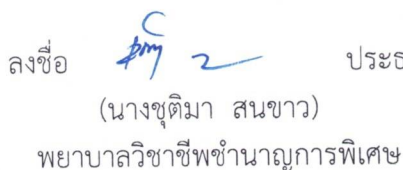 ลงชื่อ ประธ
(นางชุติมา สนขาว)
พยาบาลวิชาชีพชำนาญการพิเศษ